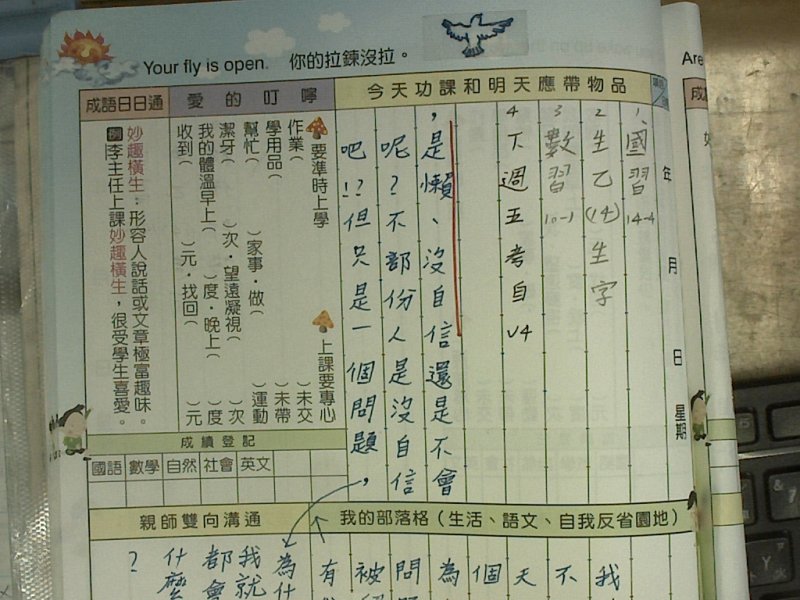 Your fly is open. 你的拉鍊沒拉。
Are
今天功課和明天應帶物品
年 月 日 星期
1.國習 14-4
2 生乙(14)生字
3 數習 10-1
4 下週五考自 U4
,是懶、沒自信還是不會
呢?不部份人是沒自信
吧!?但只是一個問題,
愛的叮嚀
要準時上學 上課要專心
作業( )未交
學用品( )未帶
幫忙( )家事.做( )運動
潔牙( )次.望遠凝視( )次
我的體溫早上( )度.晚上( )度
收到( )元.找回( )元
成語日日通
妙趣橫生:形容人說話或文章極富趣味。
例 李主任上課妙趣橫生,很受學生喜愛。
成績登記
國語 數學 自然 社會 英文
我的部落格(生活、語文、自我反省園地)
我
不
天
個
為
問
被
有
親師雙向溝通
為什
我就
都會
什麼
?